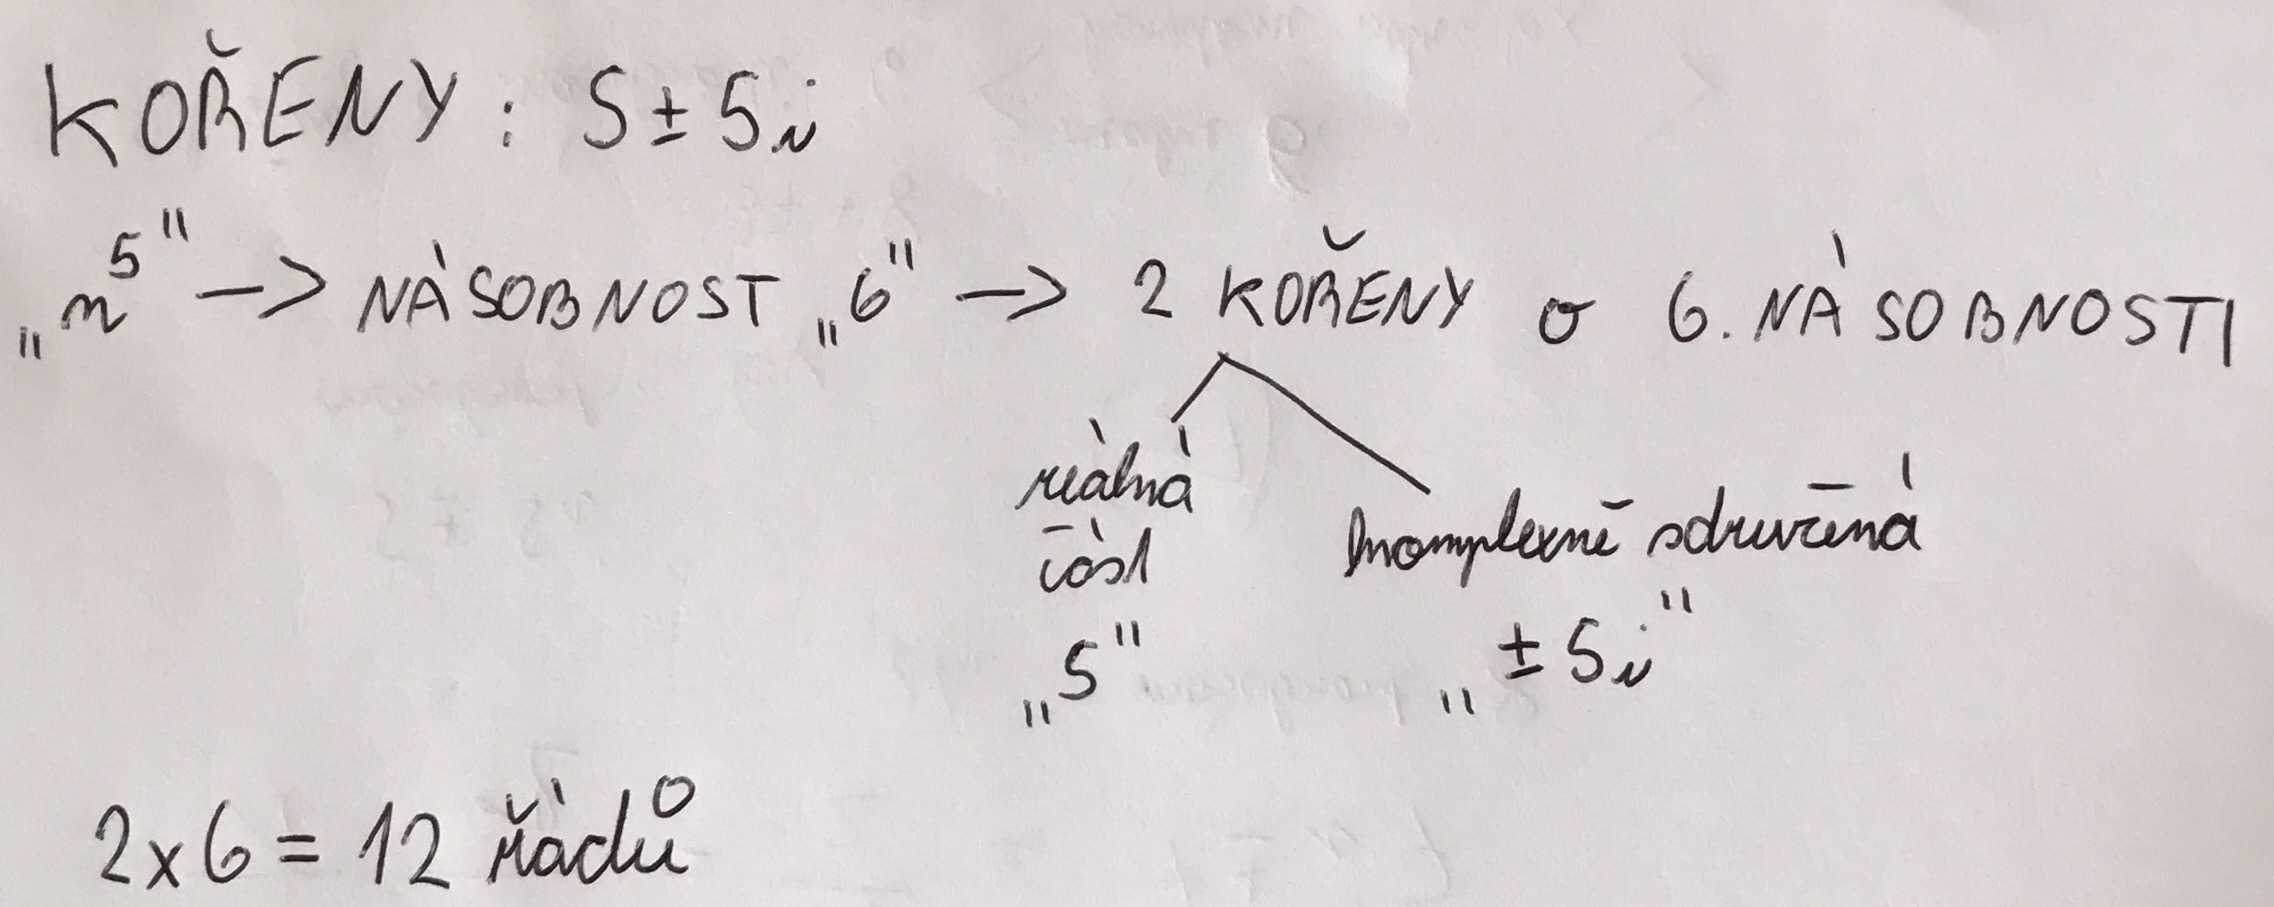 KOŘENY: 5 ± 5i
„n⁵" –> NÁSOBNOST „6" –> 2 KOŘENY o 6. NÁSOBNOSTI
reálná komplexně sdružená
část
„5" „± 5i"
2x6 = 12 řádů